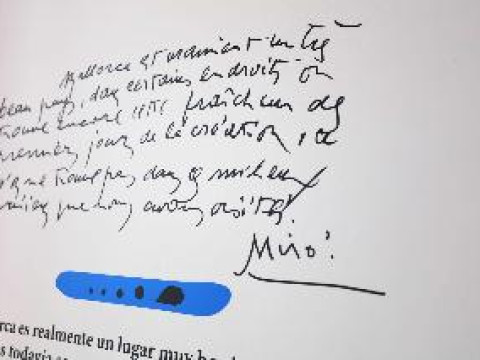 Mallorca est vraiment un très
beau pays, dans certains endroits on
trouve encore cette fraîcheur des
premiers jours de la création, ce
trouve pas dans
que nous avons visités.
Miró.
rca es realmente un lugar muy
s todavía